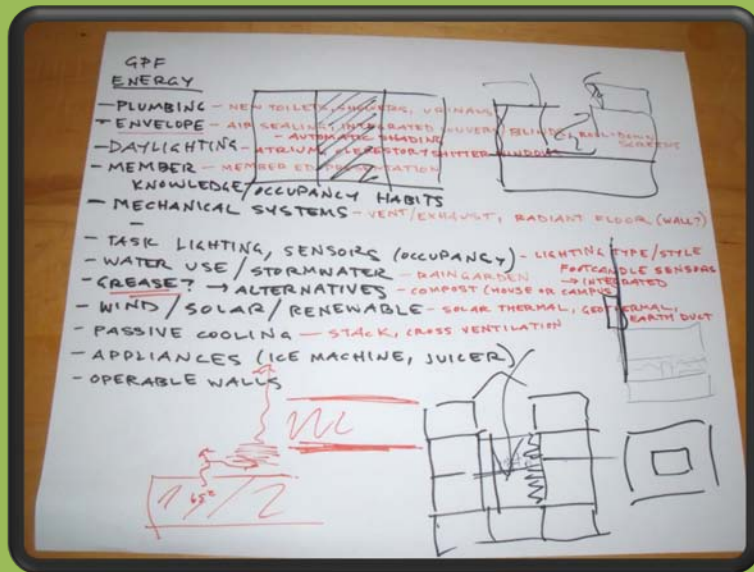 GPF
ENERGY
- PLUMBING - NEW TOILETS, SHOWERS, URINALS
- ENVELOPE - AIR SEALING, INTEGRATED LOUVERS/BLINDS, ROLL-DOWN SCREENS
- AUTOMATIC SHADING
- DAYLIGHTING - ATRIUM, CLERESTORY, WINDOW
- MEMBER - MEMBER ED. PRESENTATION
KNOWLEDGE/OCCUPANCY HABITS
- MECHANICAL SYSTEMS - VENT/EXHAUST, RADIANT FLOOR (WALL?)
-
- TASK LIGHTING, SENSORS (OCCUPANCY) - LIGHTING TYPE/STYLE
FOOTCANDLE SENSORS
→ INTEGRATED
- WATER USE/STORMWATER - RAINGARDEN
- GREASE? → ALTERNATIVES - COMPOST (HOUSE OR CAMPUS)
- WIND/SOLAR/RENEWABLE - SOLAR THERMAL, GEOTHERMAL, EARTH DUCT
- PASSIVE COOLING - STACK, CROSS VENTILATION
- APPLIANCES (ICE MACHINE, JUICER)
- OPERABLE WALLS